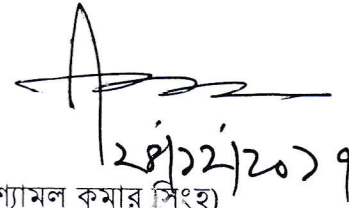 ২৪/১২/২০১৭
শ্যামল কুমার সিংহ)